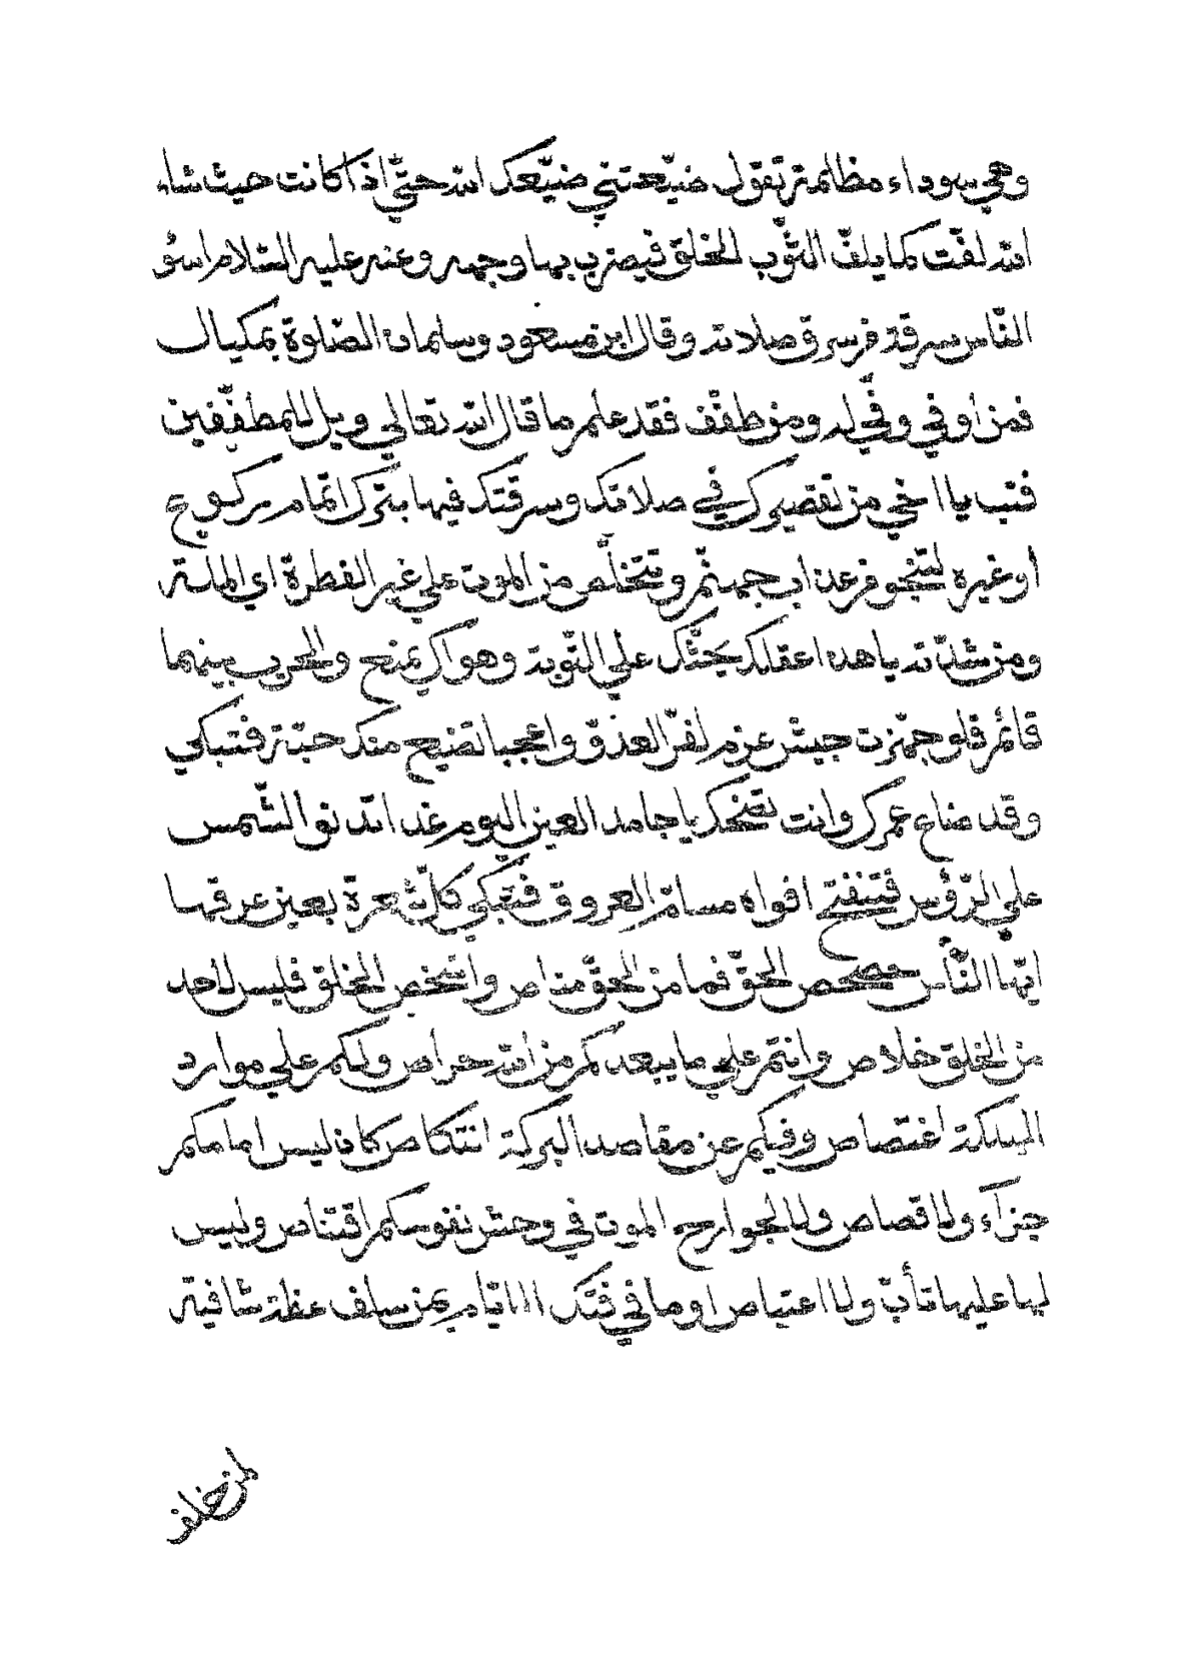 وهي سوداء مظلمة تقول ضيّعتني ضيّعك الله حتّي اذا كانت حيث شاء
الله لفّت كما يلفّ الثّوب الخلق فيضرب بها وجهه وعنه عليه السّلام اسؤ
النّاس سرقة من سرق صلاته وقال ابن مسعود وسلمان الصّلوة بمكيال
فمن أوفي وفّي له ومن طفّف فقد علم ما قال الله تعالي ويل للمطفّفين
فتب يا اخي من تقصيرك في صلاتك وسرقتك فيها بترك اتمام ركوع
أو غيره لتنجو من عذاب جهنّم وتتخلّص من الموت علي غير الفطرة اي الملة
ومن شدّته يا هذا عقلك يحثّك علي التّوبة وهواك يمنع والحرب بينهما
قائم فلو جهّزت جيش عزم لفرّ العدوّ واعجبا تضيع منك حبّة فتبكي
وقد ضاع عمرك وانت تضحك يا جامد العين اليوم غدا تدنو الشّمس
علي الرّؤس فتنفتح افواه مسامّ العروق فتبكي كلّ شعرة بعين عرقها
ايّها النّاس حصحص الحقّ فما من الحقّ مناص واشخص الخلق فليس لأحد
من الخلق خلاص وانتم علي ما يبعدكم من الله حراص ولكم علي موارد
الهلكة اغتصاص وفيكم عن مقاصد البركة انتكاص كان ليس امامكم
جزآء ولا قصاص ولا لجوارح الموت في وحش نفوسكم اقتناص وليس
لها عليها تأبّ ولا اعتياص اوما في فتك الايّام بمن سلف عظة شافية
لمن خلف